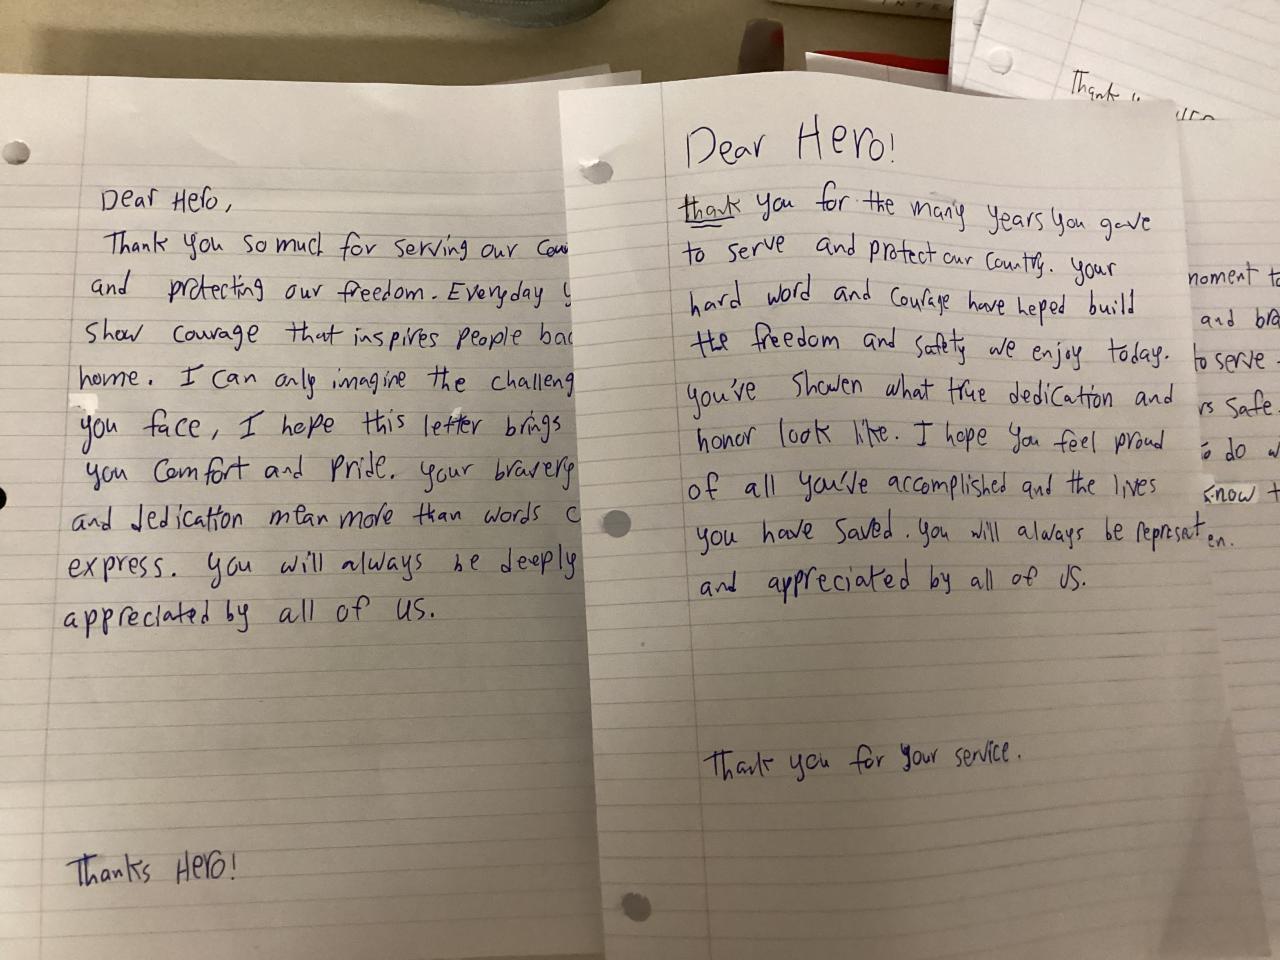 Dear Hero,
Thank you so much for serving our Cou
and protecting our freedom. Everyday y
show courage that inspires people bac
home. I can only imagine the challeng
you face, I hope this letter brings
you comfort and pride. your bravery
and dedication mean more than words c
express. you will always be deeply
appreciated by all of us.
Thanks Hero!
Dear Hero!
thank you for the many years you gave
to serve and protect our country. your
hard word and courage have heped build
the freedom and safety we enjoy today.
you've showen what true dedication and
honor look like. I hope you feel proud
of all you've accomplished and the lives
you have saved. you will always be represat
and appreciated by all of us.
Thank you for your service.
Thank
moment to
and bra
to serve
rs safe.
to do w
know t
en.